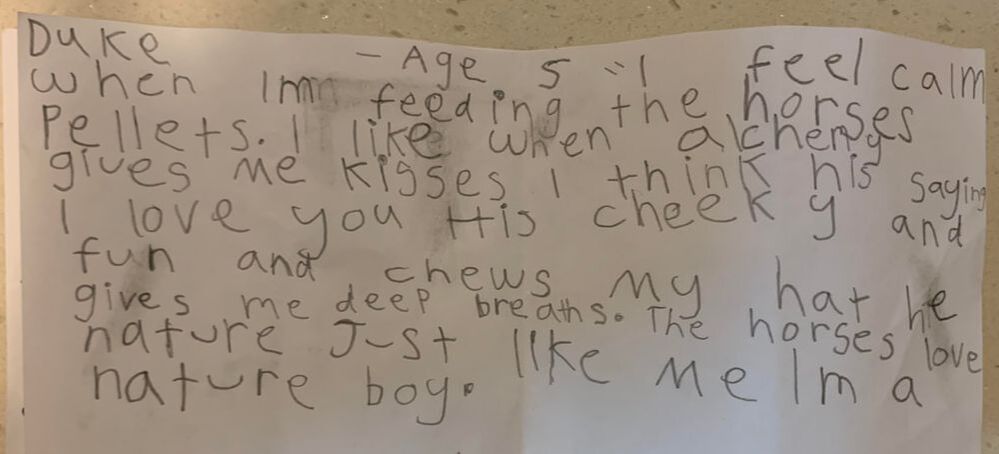 Duke - Age 5 "I feel calm
when Imm feeding the horses
Pellets. I like when alchemy
gives me kisses I think his saying
I love you His cheeky and
fun and chews my hat he
gives me deep breaths. The horses love
nature Just like me Im a
nature boy.